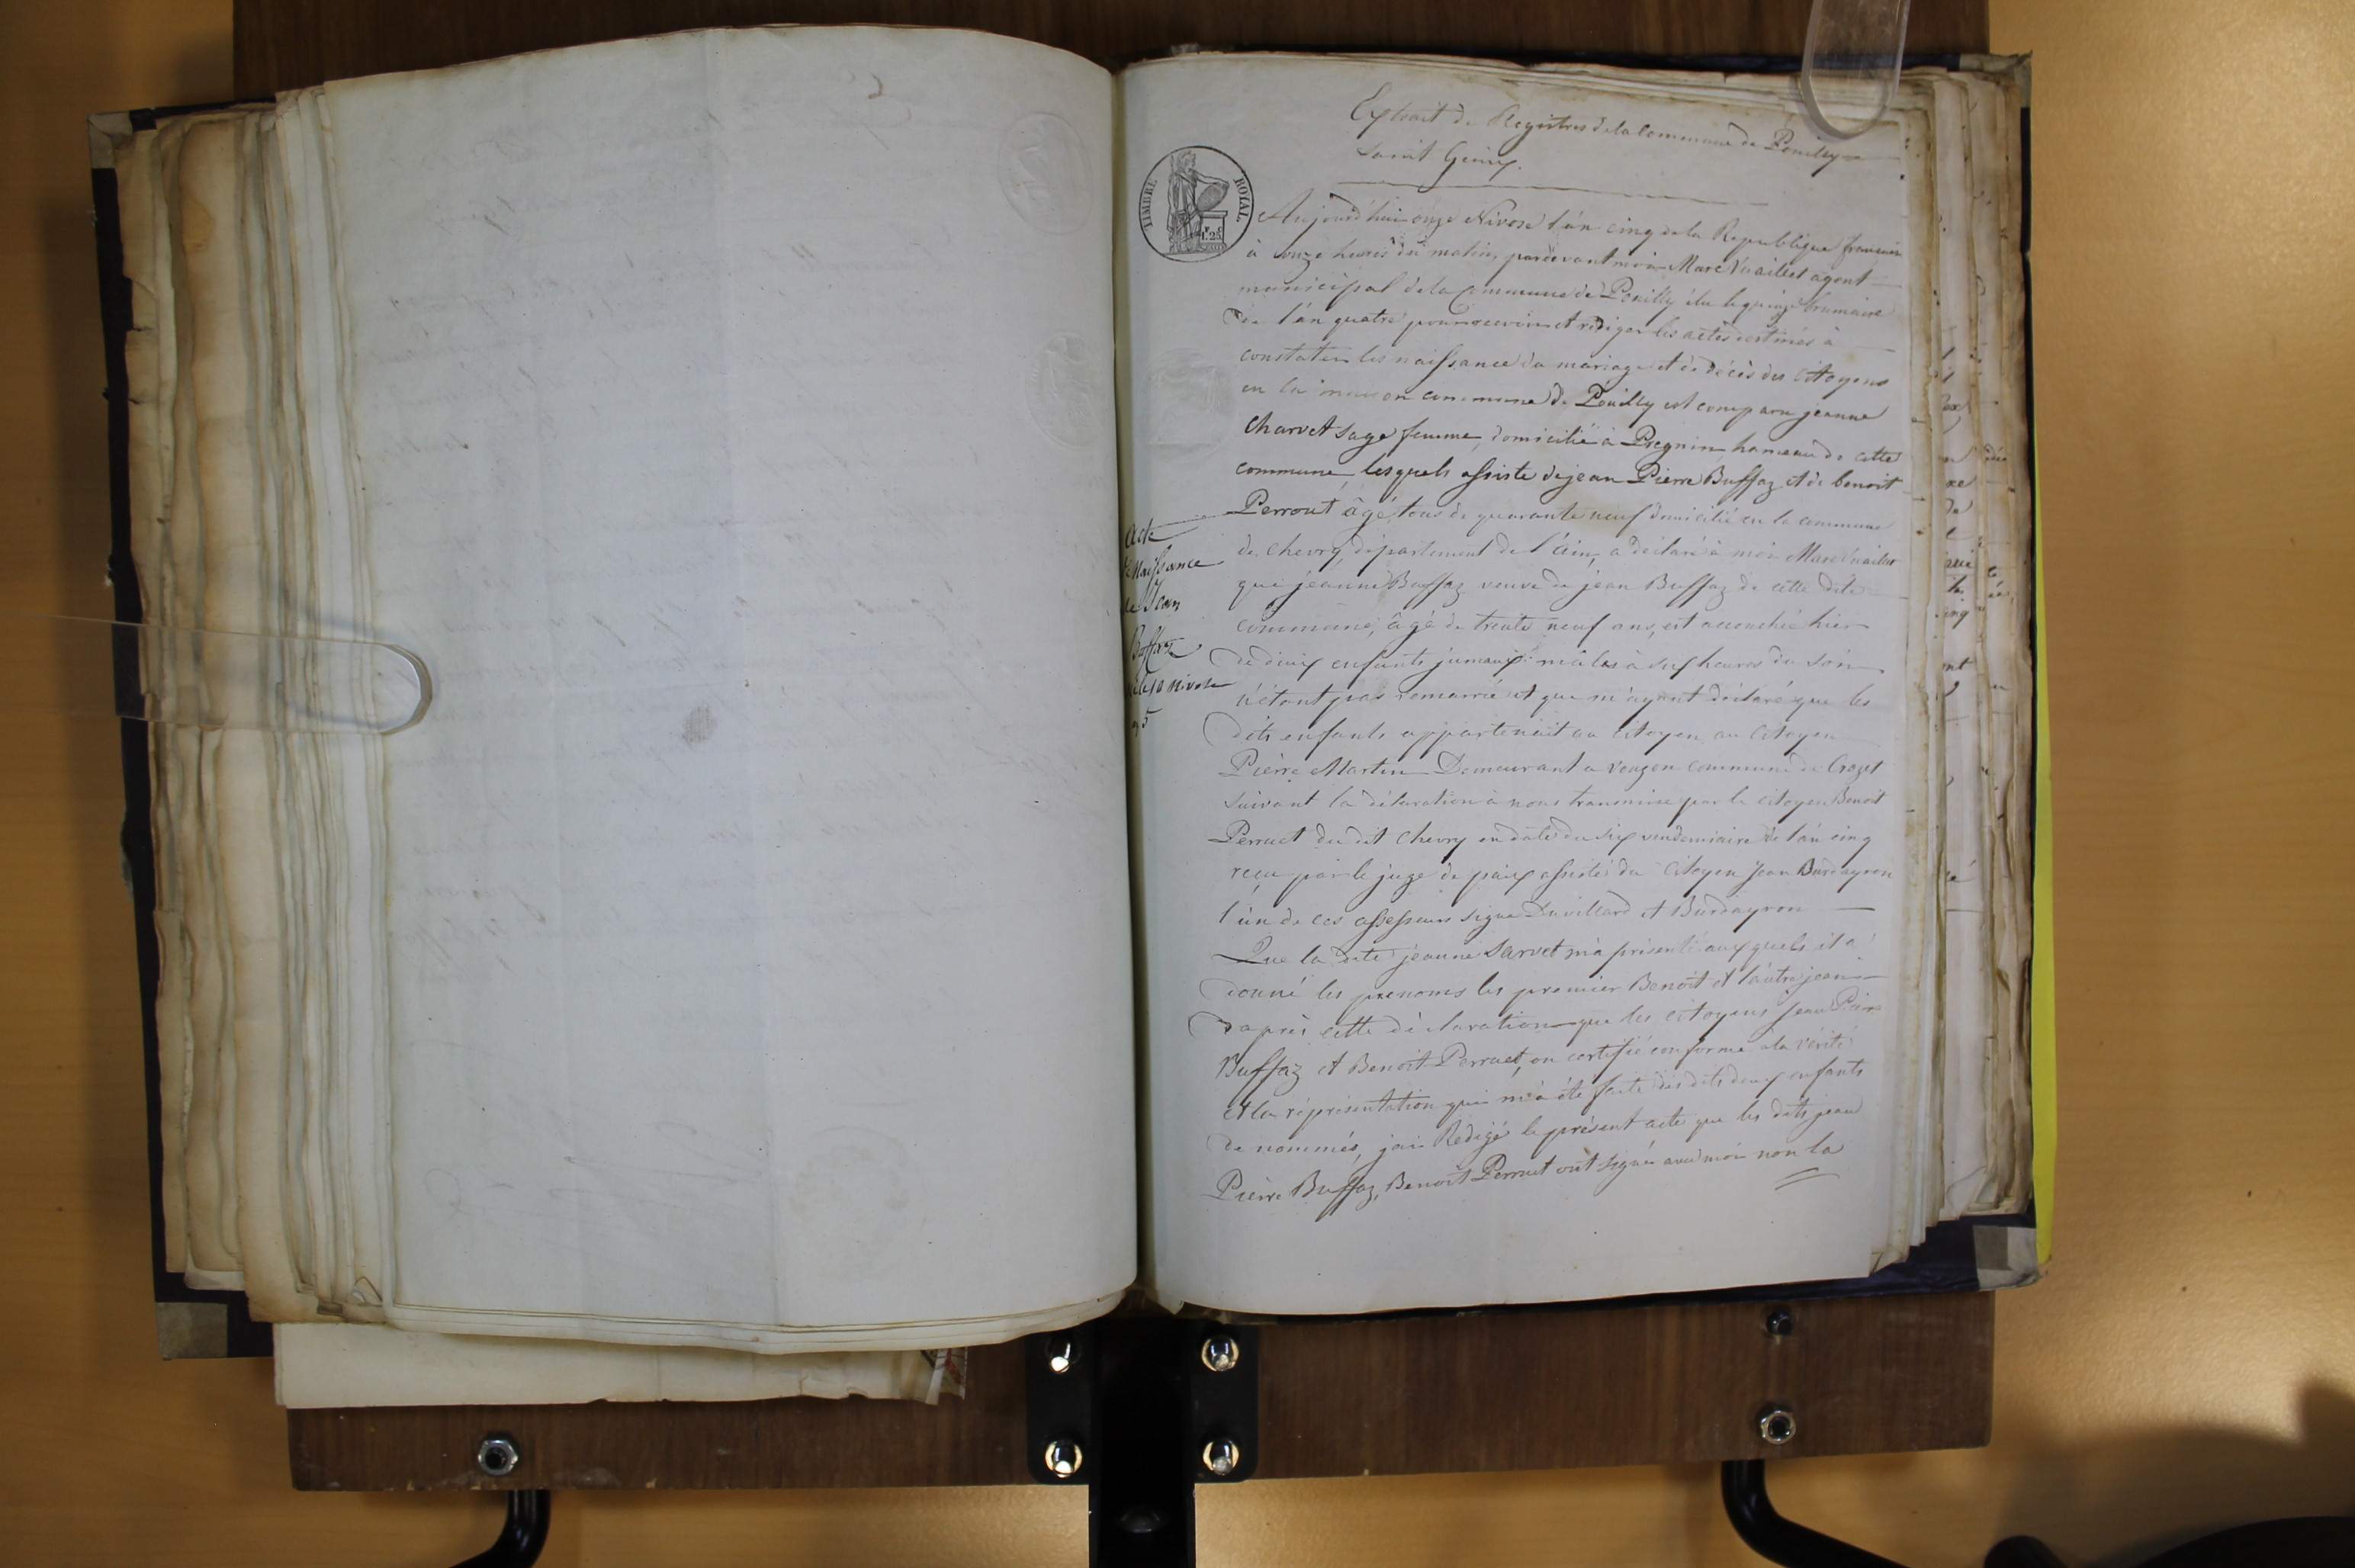 Extrait de Registres de la Commune de Pouilly
Saint Genix.
TIMBRE ROYAL
1. 25
Aujourd'hui onze Nivose l'an cinq de la Republique francaise
à onze heures du matin, pardevant moi Marc Vuaillet agent
municipal de la Commune de Pouilly élu le quinze brumaire
de l'an quatre pour recevoir et rediger les actes destinés à
constater les naissance du mariage et de décès des Citoyens
en la maison commune de Pouilly est comparu jeanne
Charvet sage femme, domicilié à Pregnin hameau de cette
commune, les quels assiste de jean Pierre Buffaz et de benoit
Perrout âgé tous de quarante neuf domicilié en la commune
de Chevry, département de l'ain, a déclaré à moi Marc Vuaillet
que jeanne Buffaz veuve de jean Buffaz de cette dite
commune, âgé de trente neuf ans, est accouchée hier
de deux enfants jumaux mâles à sept heures du soir
n'étant pas remarrié et que m'ayant déclaré que les
dits enfants appartenait au citoyen au Citoyen
Pierre Martin Demeurant a Vougon commune de Crozet
suivant la déclaration à nous transmise par le citoyen Benoit
Perruet du dit Chevry en date du six vendemiaire de l'an cinq
reçu par le juge de paix assisté du Citoyen Jean Burdayron
l'un de ces assesseurs signe Duvillard et Burdayron
Que la dite jeanne Sarvet m'a présenté aux quels il a
donné les prenoms les premier Benoit et l'autre jean
d'après cette déclaration que les citoyens Jean Pierre
Buffaz et Benoit Perruet, on certifié conforme a la vérité
et la réprésentation qui m'a été faite des dits deux enfants
de nommés, j'ai Rédigé le présent acte que les dits jean
Pierre Buffaz, Benoit Perruet ont signés avec moi non la
Acte
de Naissance
de Jean
Buffaz
le 10 Nivose
5